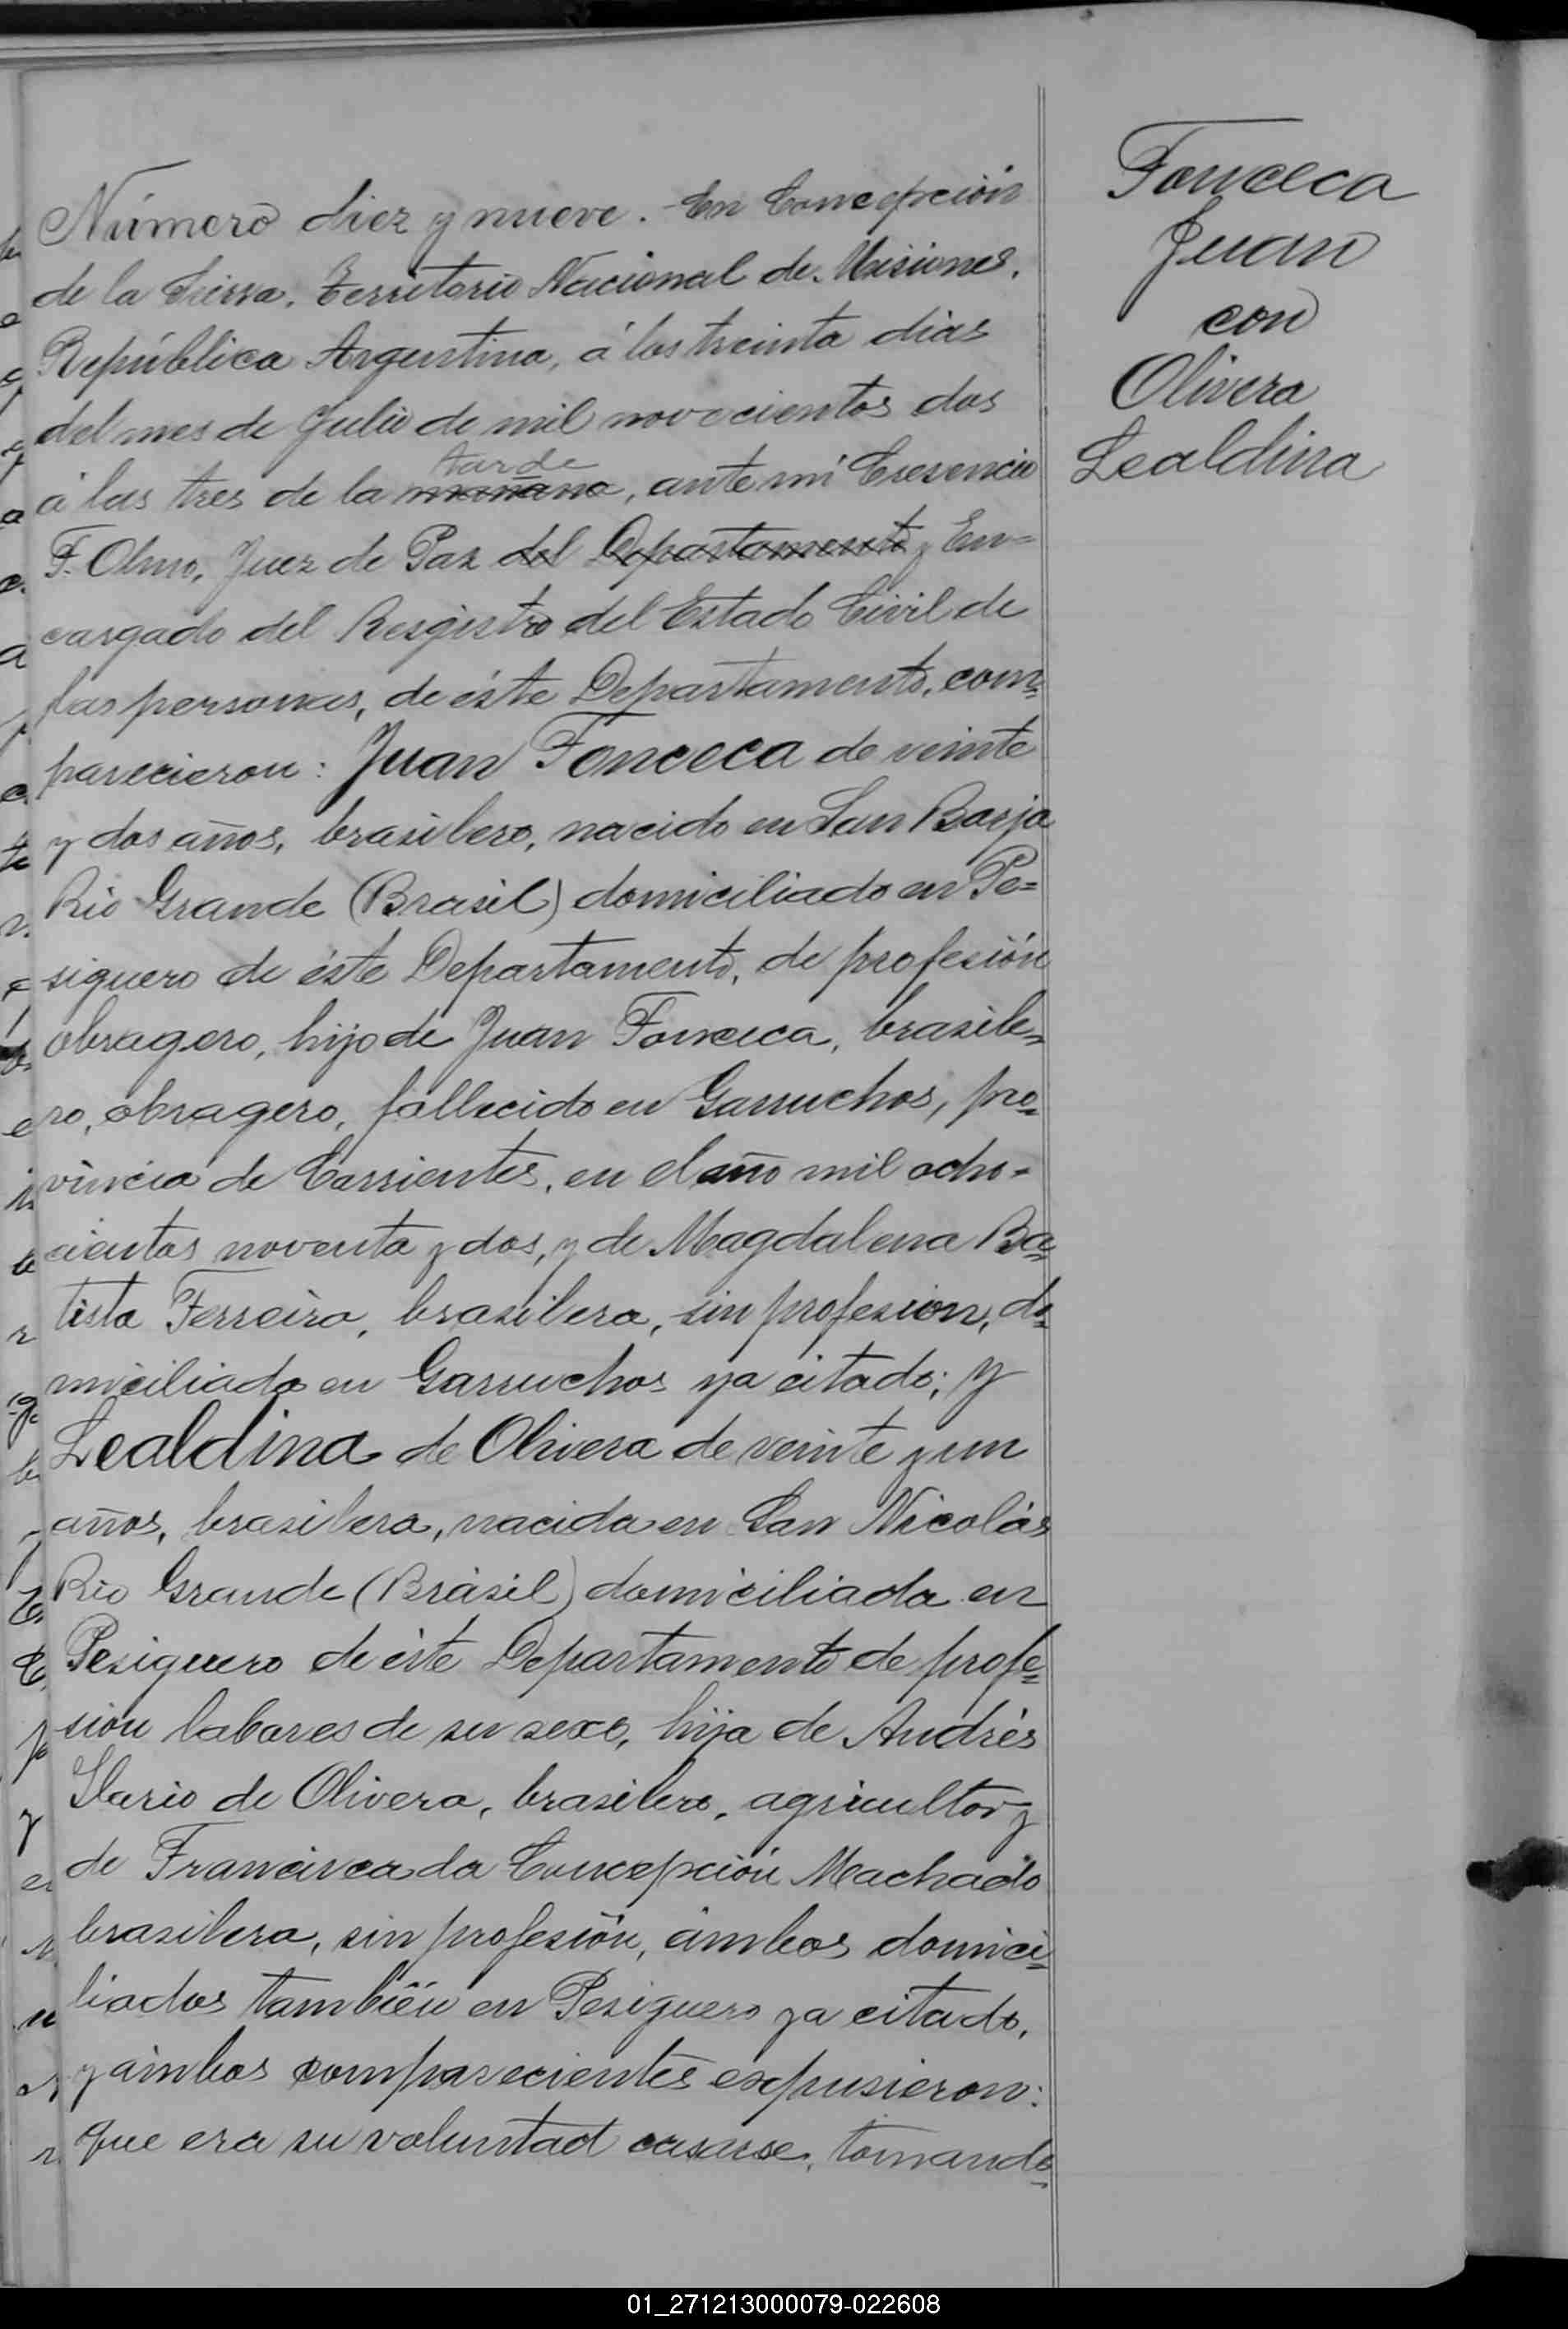 Fonceca
Juan
con
Olivera
Lealdina
Número diez y nueve. En Concepción
de la Sierra, Territorio Nacional de Misiones,
República Argentina, á los treinta dias
del mes de Julio de mil novecientos dos
tarde
á las tres de la mañana, ante mi Cresencio
F. Olmo, Juez de Paz del Departamento y En=
cargado del Resgistro del Estado Civil de
las personas, de éste Departamento, com=
parecieron: Juan Fonceca de veinte
y dos años, brasilero, nacido en San Borja
Rio Grande (Brasil) domiciliado en Pe=
siguero de éste Departamento, de profesión
obragero, hijo de Juan Fonceca, brasile=
ro, obragero, fallecido en Garruchos, pro=
vincia de Corrientes, en el año mil ocho=
cientos noventa y dos, y de Magdalena Ba=
tista Ferreira, brasilera, sin profesion, do=
miciliada en Garruchos ya citado; y
Lealdina de Olivera de veinte y un
años, brasilera, nacida en San Nicolás
Rio Grande (Brasil) domiciliada en
Pesiguero de éste Departamento de profe=
sión labores de su sexo, hija de Andrés
Ilario de Olivera, brasilero, agricultor y
de Francisca da Concepción Machado
brasilera, sin profesión, ámbos domici=
liados también en Pesiguero ya citado,
y ámbos comparecientes expusieron:
Que era su voluntad casarse, tomando=
01_271213000079-022608